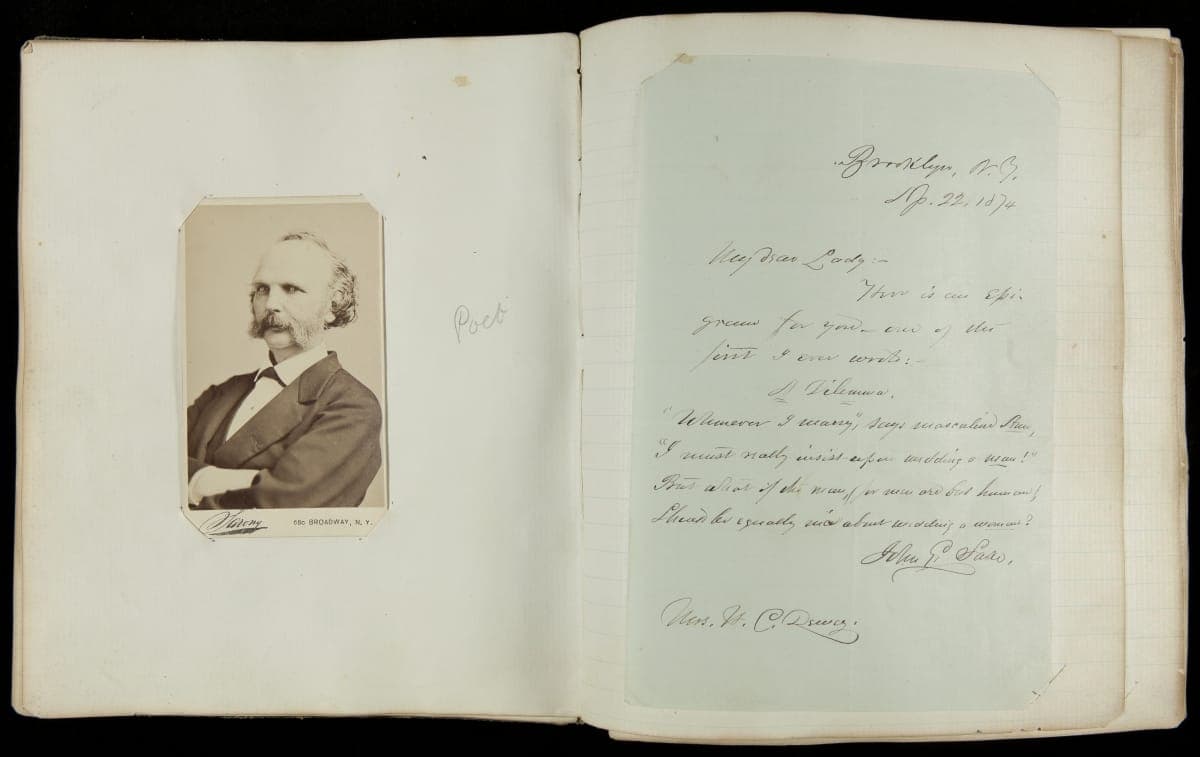 Sarony
680 BROADWAY, N. Y.
Poet
Brooklyn, N. Y.
Ap. 22, 1874
My dear Lady:—
Here is an Epi-
gram for you — one of the
first I ever wrote:—
A Dilemma.
"Whenever I marry", says masculine Ann,
"I must really insist upon wedding a man!"
But what if the man, (for men are but human)
Should be equally nice about wedding a woman?
John G. Saxe.
Mrs. H. C. Dewey.